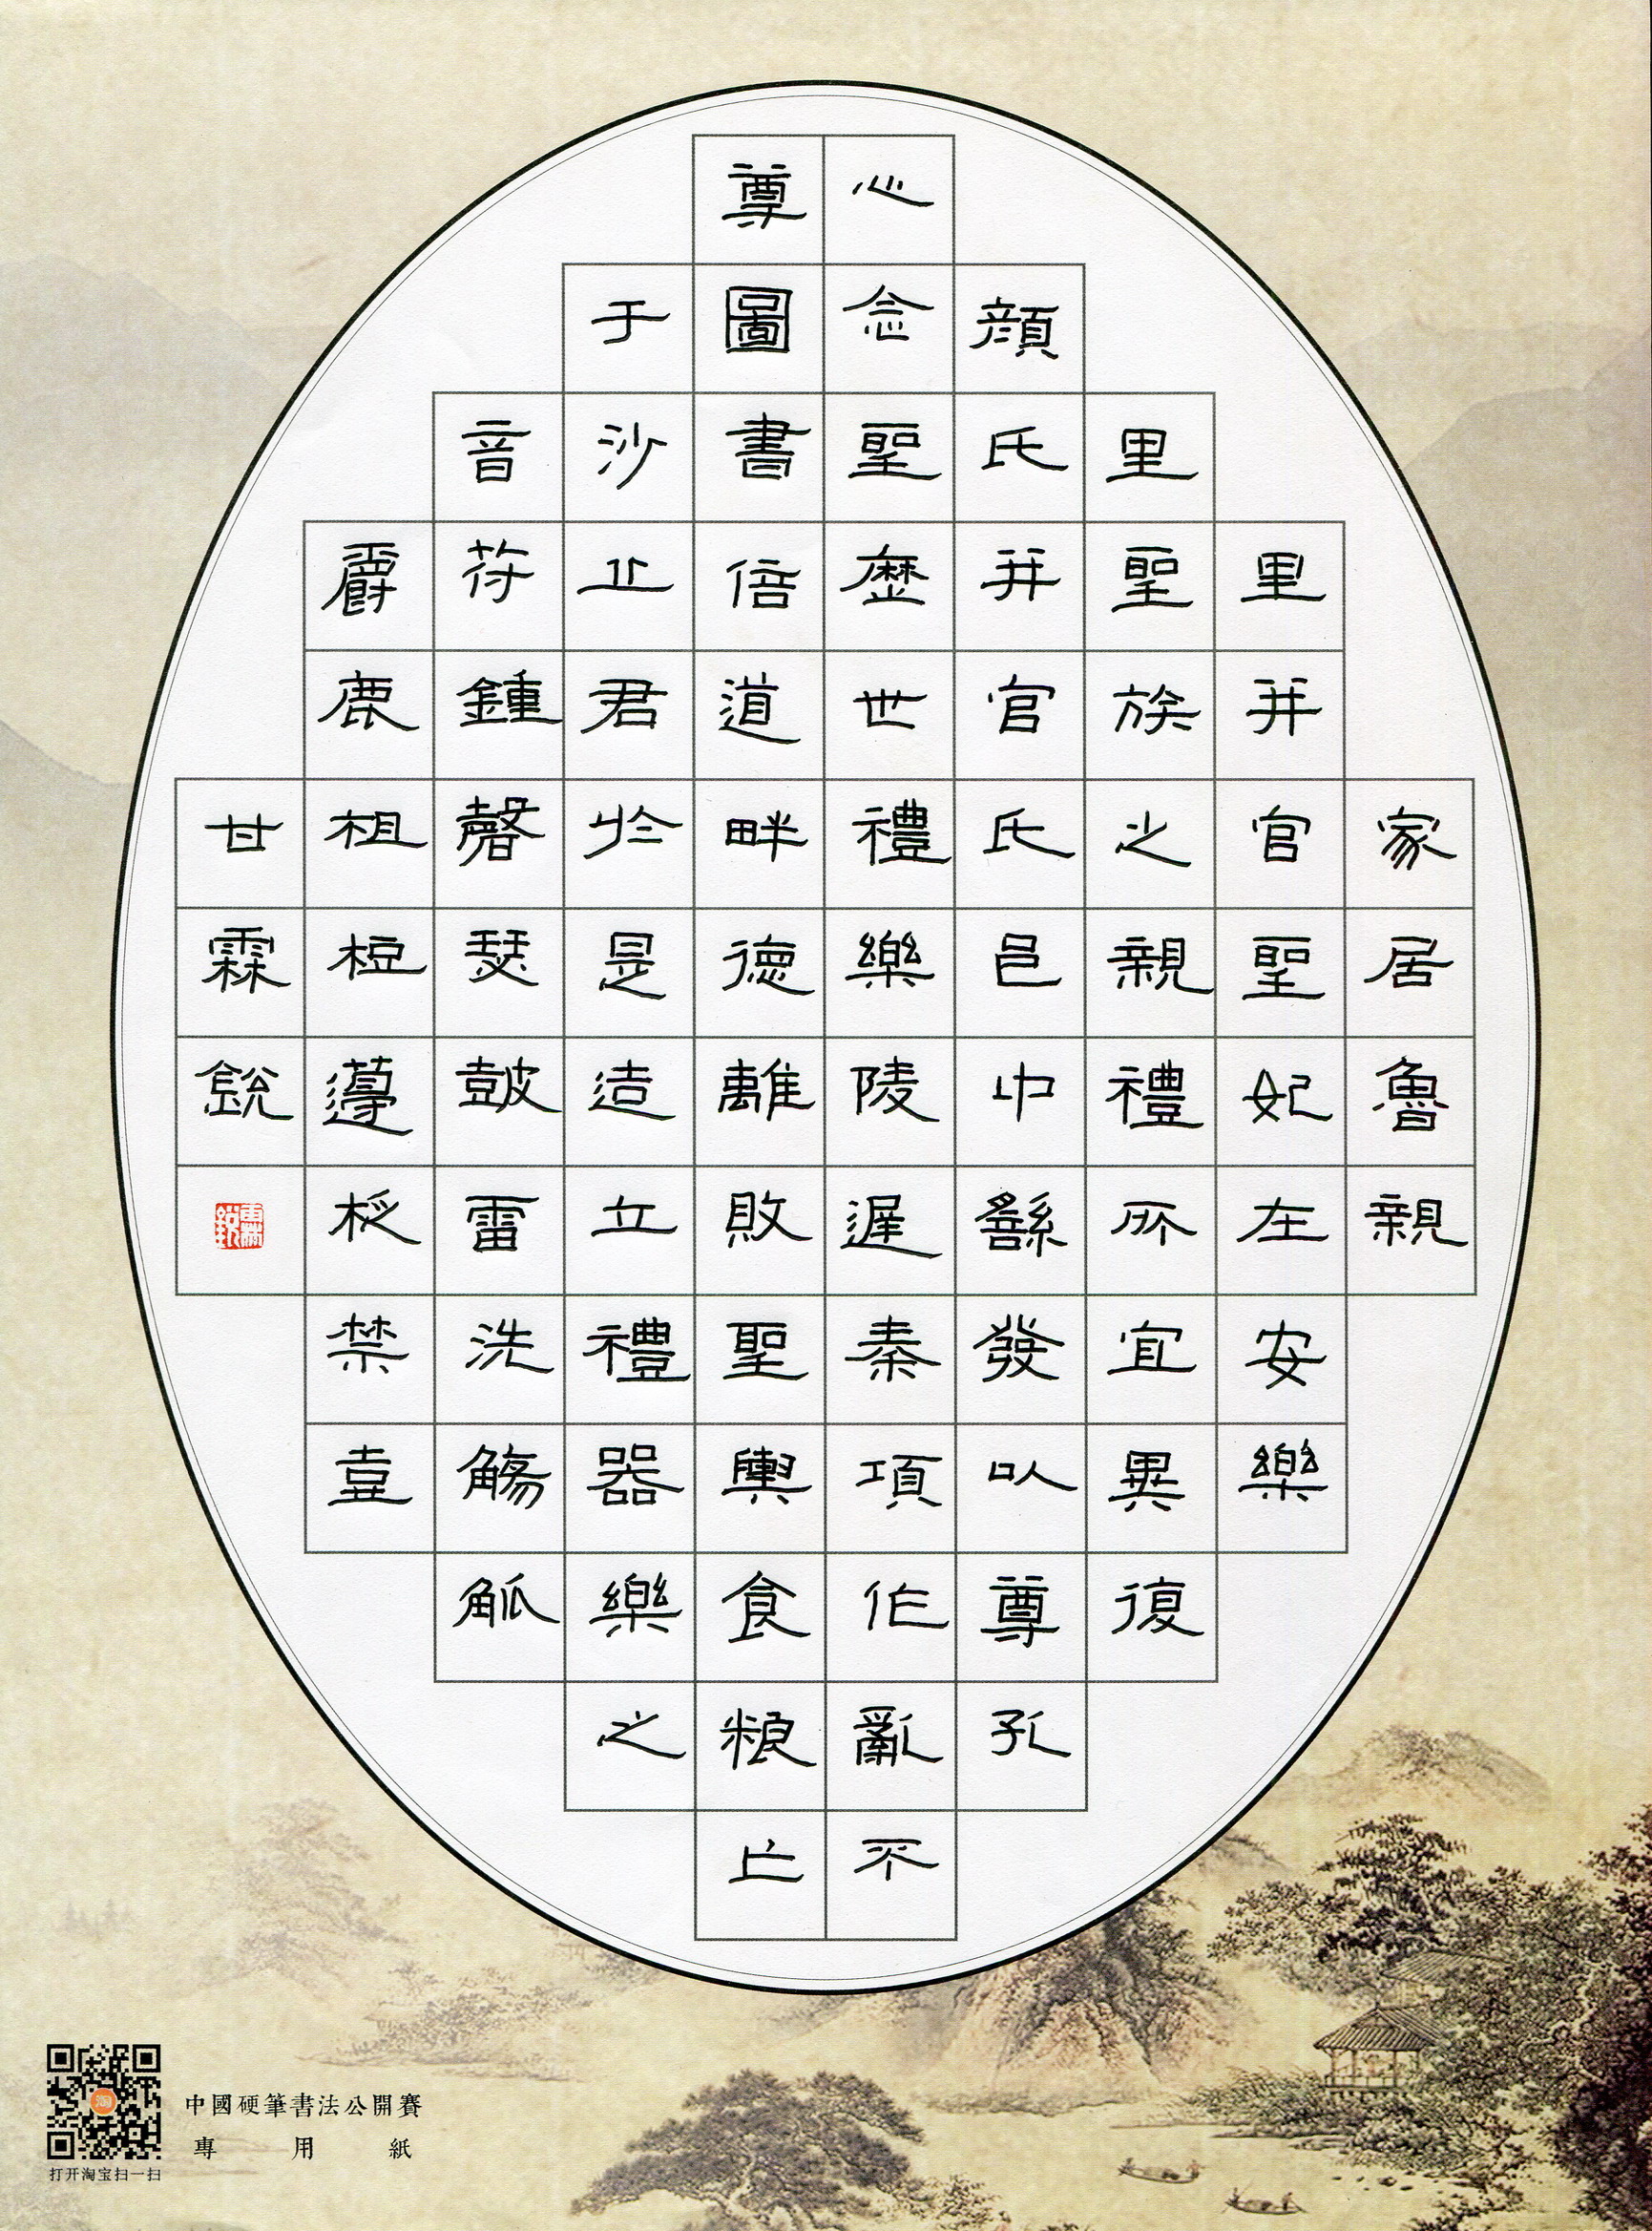 家居魯親
里并官聖妃在安樂
里聖族之親禮所宜異復
顏氏并官氏邑中繇發以尊孔
心念聖歷世禮樂陵遲秦項作亂不
尊圖書倍道畔德離敗聖輿食粮亡
于沙丘君於是造立禮器樂之
音符鍾磬瑟鼓雷洗觴觚
爵鹿柤梪籩柉禁壺
甘霖銳
中國硬筆書法公開賽
專用紙
淘
打开淘宝扫一扫